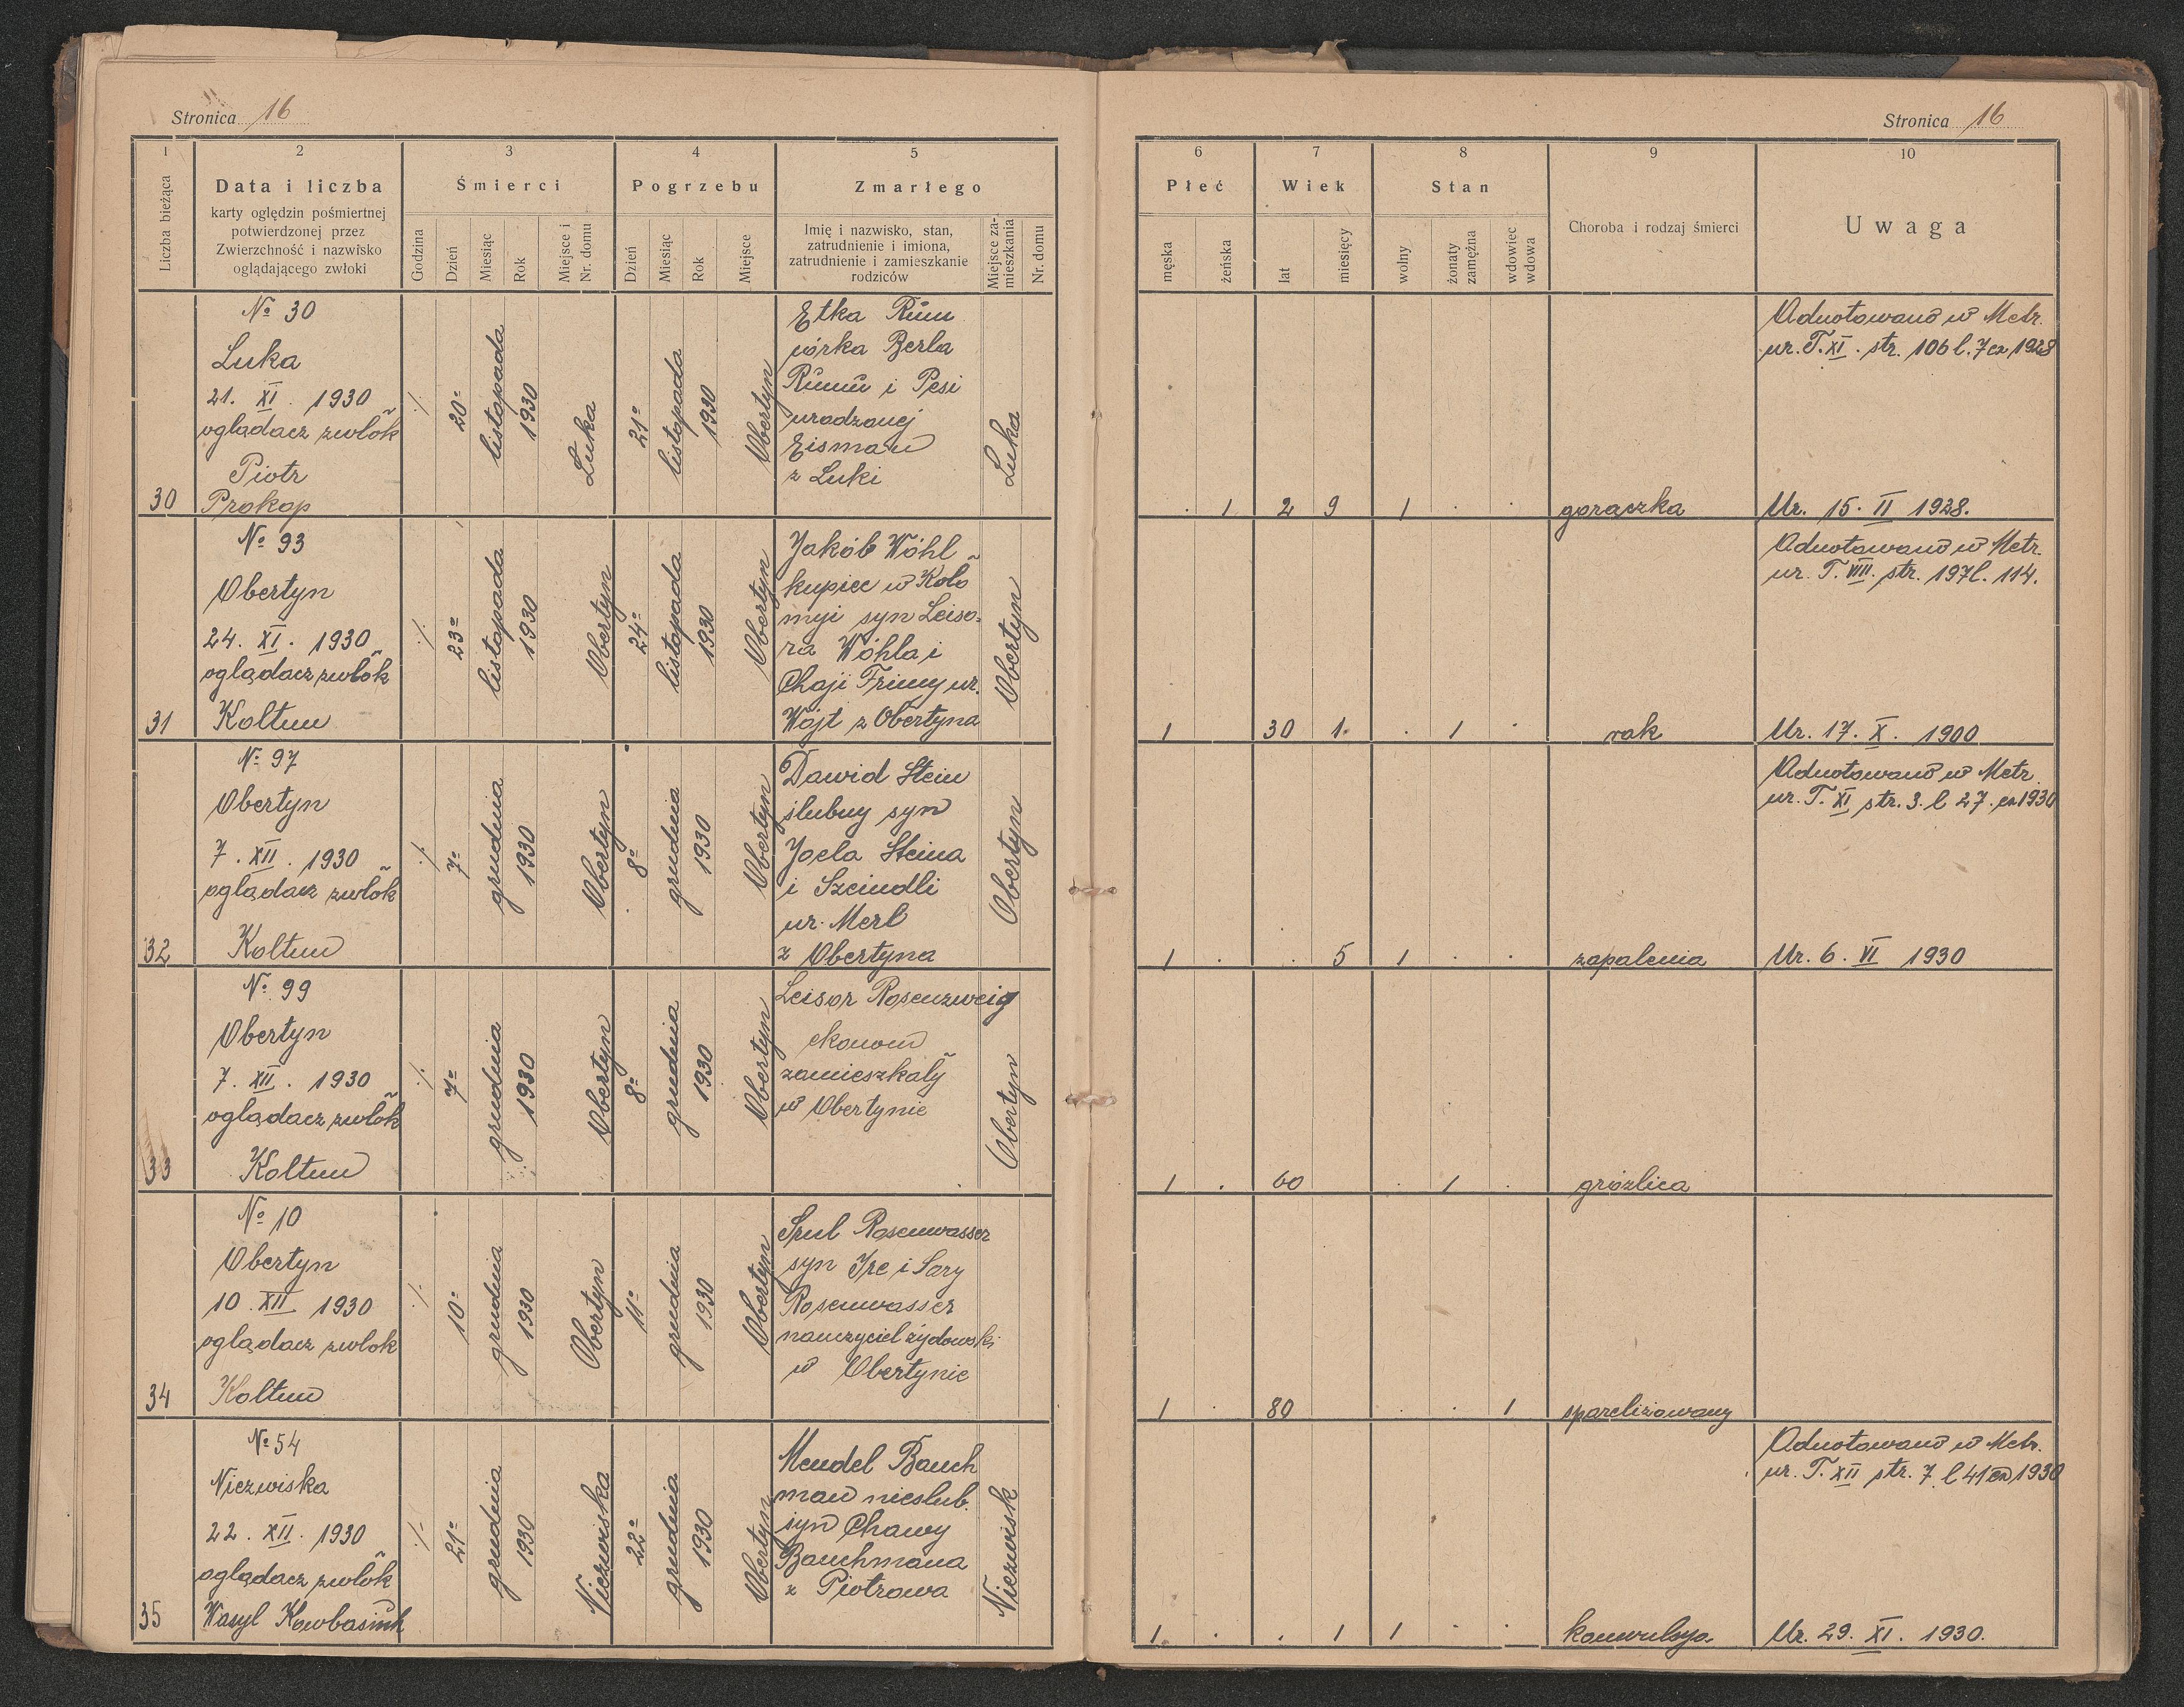 Stronica 16
Stronica 16
1
2
3
4
5
6
7
8
9
10
Liczba bieżąca
Data i liczba
karty oględzin pośmiertnej
potwierdzonej przez
Zwierzchność i nazwisko
oglądającego zwłoki
Śmierci
Godzina
Dzień
Miesiąc
Rok
Miejsce i
Nr. domu
Pogrzebu
Dzień
Miesiąc
Rok
Miejsce
Zmarłego
Imię i nazwisko, stan,
zatrudnienie i imiona,
zatrudnienie i zamieszkanie
rodziców
Miejsce za-
mieszkania
Nr. domu
Płeć
męska
żeńska
Wiek
lat
miesięcy
Stan
wolny
żonaty
zamężna
wdowiec
wdowa
Choroba i rodzaj śmierci
Uwaga
30
№ 30
Luka
21. XI. 1930
oglądacz zwłok
Piotr
Prokop
·/·
20
listopada
1930
Luka
21
listopada
1930
Obertyn
Etka Rŭm
córka Berla
Rŭmŭ i Pesi
urodzonej
Eisman
z Luki
Luka
· 1
2 9
1 · ·
gorączka
Adnotowano w Metr.
ur. T. XI. str. 106 l. 7 ex 1928
Ur. 15. II 1928.
31
№ 93
Obertyn
24. XI. 1930
oglądacz zwłok
Koltun
·/·
23
listopada
1930
Obertyn
24
listopada
1930
Obertyn
Jakób Wöhl
kupiec w Koło
myi syn Leiso-
ra Wöhla i
Chaji Frimy ur.
Wojt z Obertyna
Obertyn
1
30 1.
· 1 ·
rak
Adnotowano w Metr.
ur. T. VIII. str. 197 l. 114.
Ur. 17. X. 1900
32
№ 97
Obertyn
7. XII. 1930
oglądacz zwłok
Koltun
·/·
7
grudnia
1930
Obertyn
8
grudnia
1930
Obertyn
Dawid Stein
ślubny syn
Joela Steina
i Szeindli
ur. Merl
z Obertyna
Obertyn
1 ·
· 5
1 · ·
zapalenia
Adnotowano w Metr.
ur. T. XI str. 3. l 27. ex 1930
Ur. 6. VI 1930
33
№ 99
Obertyn
7. XII. 1930
oglądacz zwłok
Koltun
·/·
7
grudnia
1930
Obertyn
8
grudnia
1930
Obertyn
Leisor Rosenzweig
ekonom
zamieszkały
w Obertynie
Obertyn
1 ·
60
· 1 ·
gruźlica
34
№ 10
Obertyn
10. XII 1930
oglądacz zwłok
Koltun
·/·
10
grudnia
1930
Obertyn
11
grudnia
1930
Obertyn
Srul Rosenwasser
syn Ire i Sary
Rosenwasser
nauczyciel żydowski
w Obertynie
1 ·
80
· · 1
sparelizowany
35
№ 54
Niezwiska
22. XII. 1930
oglądacz zwłok
Wasyl Kowbasiuk
·/·
21
grudnia
1930
Niezwiska
22
grudnia
1930
Obertyn
Mendel Bauch
man nieślub.
syn Chawy
Bauchmana
z Piotrowa
Niezwisk
1 ·
· 1
1 · ·
konwulsja
Adnotowano w Metr.
ur. T. XII str. 7 l 41 ex 1930
Ur. 29. XI. 1930.